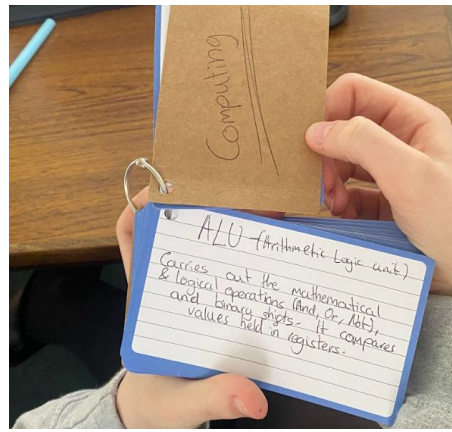 Computing
ALU (Arithmetic Logic unit)
Carries out the mathematical
& logical operations (And, Or, Not),
and binary shifts. It compares
values held in registers.